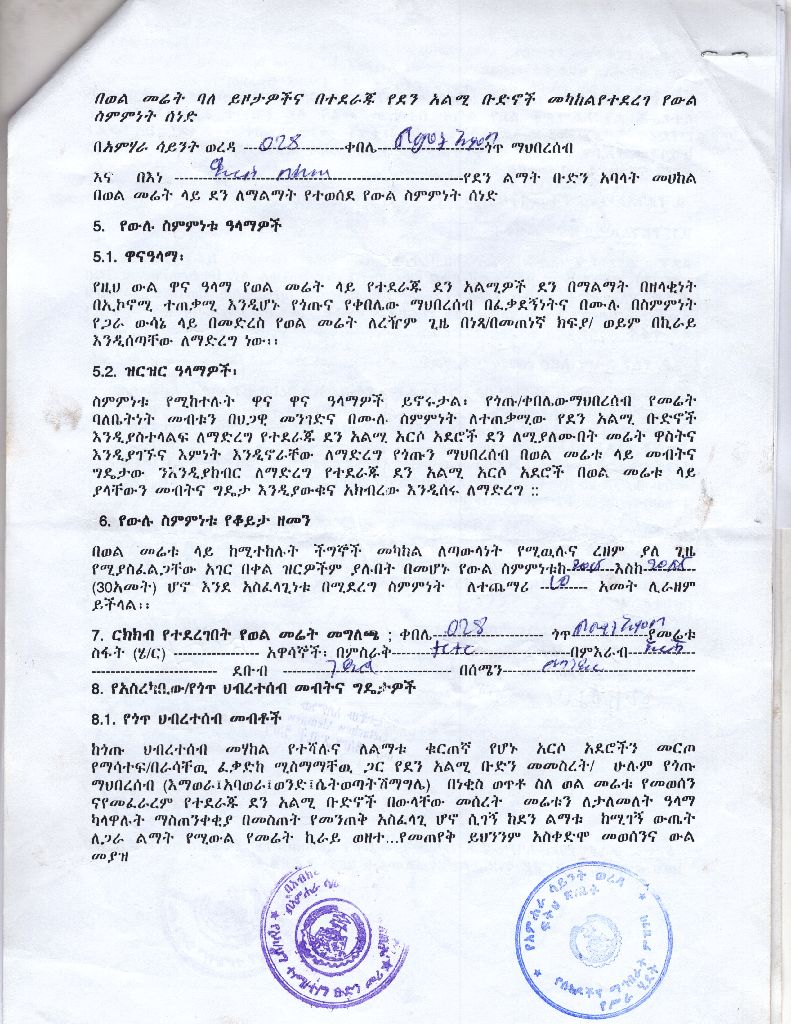 በወል መሬት ባለ ይዞታዎችና በተደራጁ የደን አልሚ ቡድኖች መካከልየተደረገ የውል
ስምምነት ሰነድ
በአምሃራ ሳይንት ወረዳ 028 ቀበሌ ጎጥ ማህበረሰብ
እና በእነ የደን ልማት ቡድን አባላት መሀከል
በወል መሬት ላይ ደን ለማልማት የተወሰደ የውል ስምምነት ሰነድ
5. የውሉ ስምምነቱ ዓላማዎች
5.1. ዋናዓላማ፡
የዚህ ውል ዋና ዓላማ የወል መሬት ላይ የተደራጁ ደን አልሚዎች ደን በማልማት በዘላቂነት
በኢኮኖሚ ተጠቃሚ እንዲሆኑ የጎጡና የቀበሌው ማህበረሰብ በፈቃደኝነትና በሙሉ በስምምነት
የጋራ ውሳኔ ላይ በመድረስ የወል መሬት ለረዥም ጊዜ በነጻ/በመጠነኛ ክፍያ/ ወይም በኪራይ
እንዲሰጣቸው ለማድረግ ነው፡፡
5.2. ዝርዝር ዓላማዎች፡
ስምምነቱ የሚከተሉት ዋና ዋና ዓላማዎች ይኖሩታል፡ የጎጡ/ቀበሌውማህበረሰብ የመሬት
ባለቤትነት መብቱን በህጋዊ መንገድና በሙሉ ስምምነት ለተጠቃሚው የደን አልሚ ቡድኖች
እንዲያስተላልፍ ለማድረግ የተደራጁ ደን አልሚ አርሶ አደሮች ደን ለሚያለሙበት መሬት ዋስትና
እንዲያገኙና እምነት እንዲኖራቸው ለማድረግ የጎጡን ማህበረሰብ በወል መሬቱ ላይ መብትና
ግዴታው ንእንዲያከብር ለማድረግ የተደራጁ ደን አልሚ አርሶ አደሮች በወል መሬቱ ላይ
ያላቸውን መብትና ግዴታ እንዲያውቁና አክብረው እንዲሰሩ ለማድረግ ::
6. የውሉ ስምምነቱ የቆይታ ዘመን
በወል መሬቱ ላይ ከሚተከሉት ችግኞች መካከል ለጣውላነት የሚዉሉና ረዘም ያለ ጊዜ
የሚያስፈልጋቸው አገር በቀል ዝርዎችም ያሉበት በመሆኑ የውል ስምምነቱከ እስከ
(30አመት) ሆኖ እንደ አስፈላጊነቱ በሚደረግ ስምምነት ለተጨማሪ 10 አመት ሊራዘም
ይችላል፡፡
7. ርክክብ የተደረገበት የወል መሬት መግለጫ ; ቀበሌ 028 ጎጥ የመሬቱ
ስፋት (ሄ/ር) አዋሳኞች፡ በምስራቅ በምእራብ
ደቡብ በሰሜን
8. የአስረካቢው/የጎጥ ህብረተሰብ መብትና ግዴታዎች
8.1. የጎጥ ህብረተሰብ መብቶች
ከጎጡ ህብረተሰብ መሃከል የተሻሉና ለልማቱ ቁርጠኛ የሆኑ አርሶ አደሮችን መርጦ
የማሳተፍ/በራሳቸዉ ፈቃድከ ሚስማማቸዉ ጋር የደን አልሚ ቡድን መመስረት/ ሁሉም የጎጡ
ማህበረሰብ (እማወራ፤አባወራ፤ወንድ፤ሴትወጣትሽማግሌ) በነቂስ ወጥቶ ስለ ወል መሬቱ የመወሰን
ናየመፈራረም የተደራጁ ደን አልሚ ቡድኖች በውላቸው መሰረት መሬቱን ለታለመለት ዓላማ
ካላዋሉት ማስጠንቀቂያ በመስጠት የመንጠቅ አስፈላጊ ሆኖ ሲገኝ ከደን ልማቱ ከሚገኝ ውጤት
ለጋራ ልማት የሚውል የመሬት ኪራይ ወዘተ...የመጠየቅ ይህንንም አስቀድሞ መወሰንና ውል
መያዝ